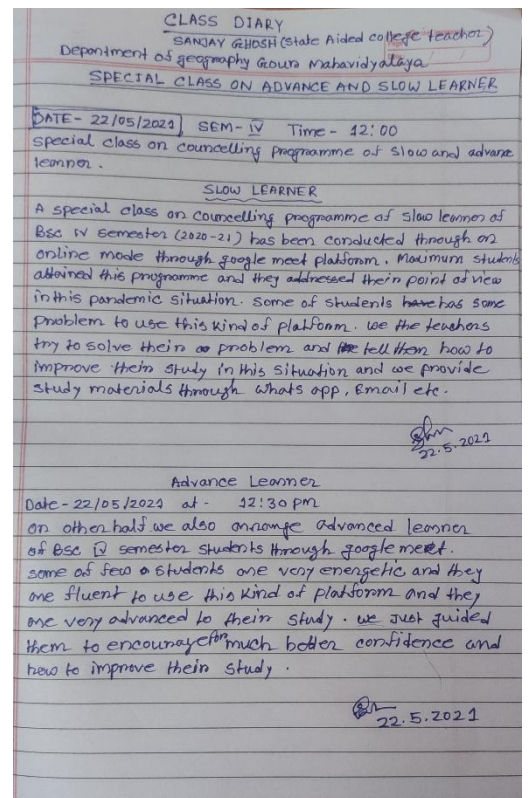 CLASS DIARY
SANJAY GHOSH (State Aided college teacher)
Department of geography Gour Mahavidyalaya
SPECIAL CLASS ON ADVANCE AND SLOW LEARNER
DATE - 22/05/2021 SEM - IV Time - 12:00
special class on councelling programme of slow and advance
learner.
SLOW LEARNER
A special class on councelling programme of slow learner of
Bsc IV semester (2020-21) has been conducted through on
online mode through google meet platform. Maximum students
attained this programme and they addressed their point of view
in this pandemic situation. some of students have has some
problem to use this kind of platform. we the teachers
try to solve their problem and tell them how to
improve their study in this situation and we provide
study materials through whats app, Email etc.
22.5.2021
Advance Learner
Date - 22/05/2021 at - 12:30 pm
on other half we also arrange advanced learner
of Bsc IV semester students through google meet.
some of few students are very energetic and they
are fluent to use this kind of platform and they
are very advanced to their study. we Just guided
them to encourage for much better confidence and
how to improve their study.
22.5.2021